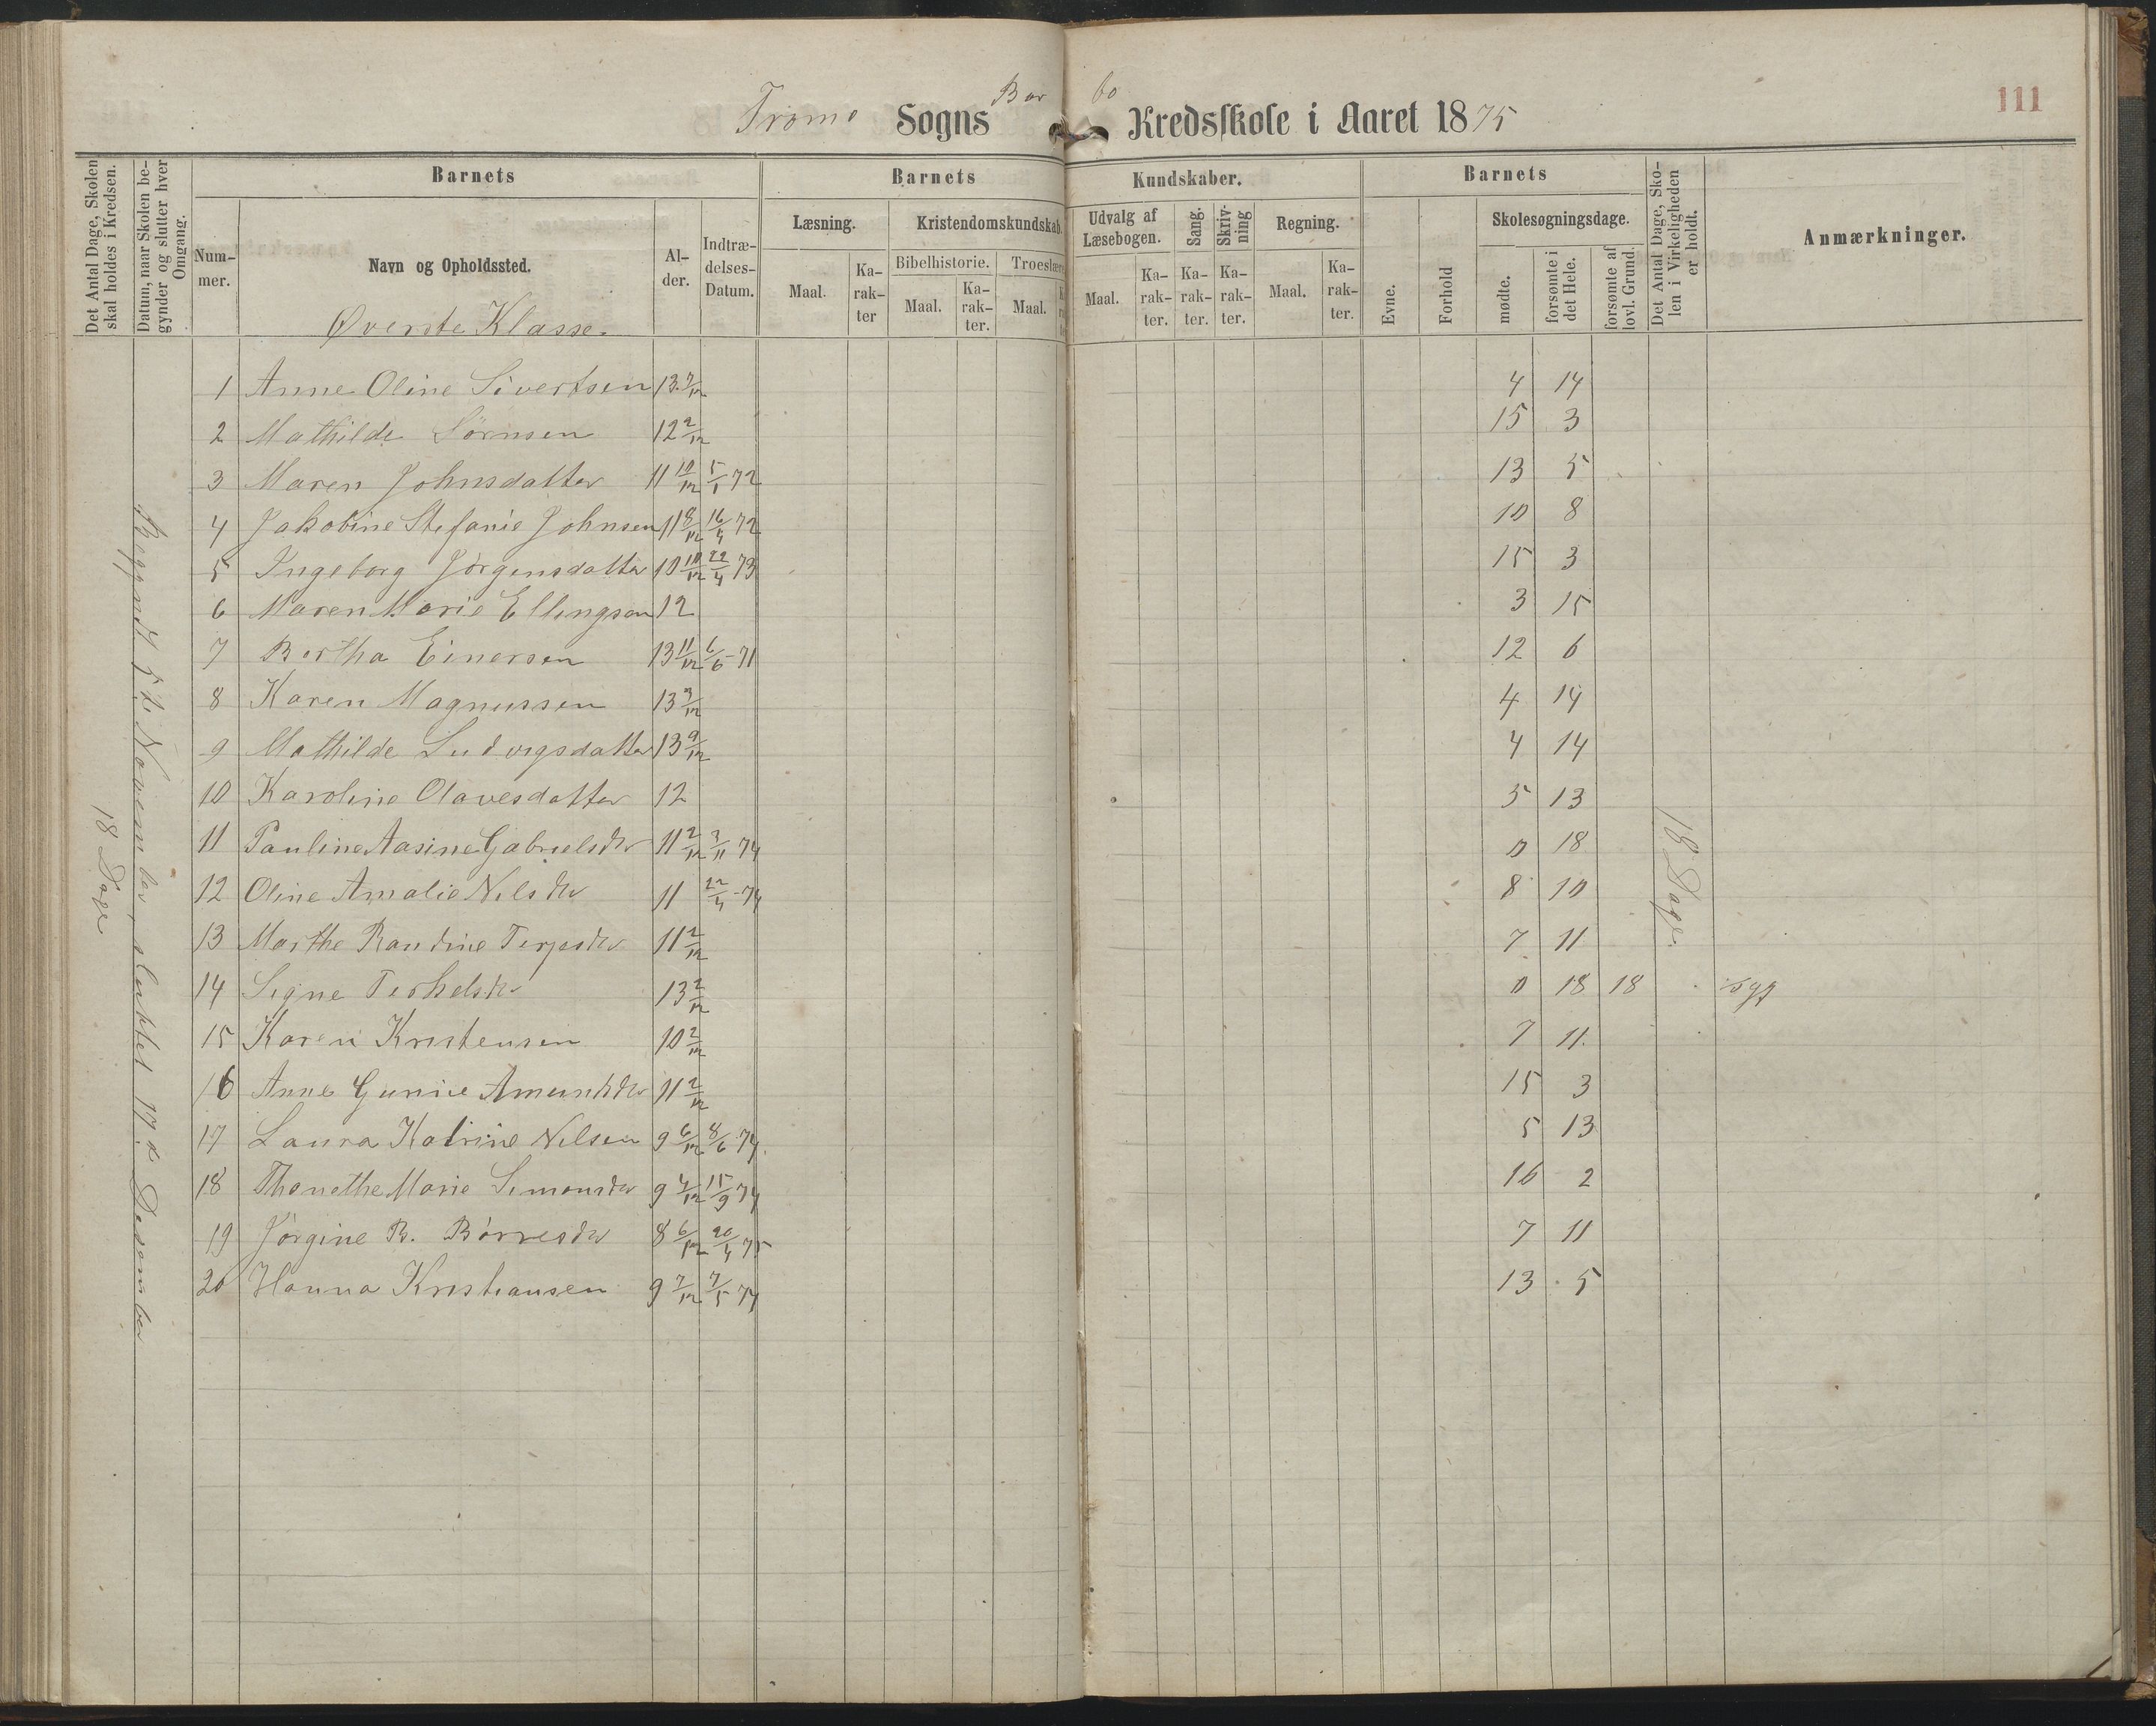 111
Tromø Sogns Bar bo Kredsskole i Aaret 1875
Det Antal Dage, Skolen skal holdes i Kredsen.
Datum, naar Skolen begynder og slutter hver Omgang.
Barnets
Nummer.
Navn og Opholdssted.
Alder.
Indtrædelses-Datum.
Barnets Kundskaber.
Læsning.
Maal.
Karakter
Kristendomskundskab.
Bibelhistorie.
Maal.
Karakter.
Troeslære
Maal.
Udvalg af Læsebogen.
Maal.
Karakter.
Sang.
Karakter.
Skrivning
Karakter.
Regning.
Maal.
Karakter.
Barnets
Evne.
Forhold
Skolesøgningsdage.
mødte.
forsømte i det Hele.
forsømte af lovl. Grund.
Det Antal Dage, Skolen i Virkeligheden er holdt.
Anmærkninger.
Øverste Klasse.
1 Anne Oline Sivertsen 13 7/12 4 14
2 Mathilde Sørnsen 12 2/12 15 3
3 Maren Johnsdatter 11 10/12 5/1 72 13 5
4 Jakobine Stefanie Johnsen 11 8/12 16/4 72 10 8
5 Ingeborg Jørgensdatter 10 10/12 22/4 73 15 3
6 Maren Marie Ellingsen 12 3 15
7 Bertha Einersen 13 11/12 6/6-71 12 6
8 Karen Magnussen 13 3/12 4 14
9 Mathilde Ludvigsdatter 13 9/12 4 14
10 Karoline Olavesdatter 12 5 13
11 Pauline Aasine Gabrielsdtr 11 2/12 3/11 74 0 18
12 Oline Amalie Nilsdtr 11 22/4-74 8 10
13 Marthe Randine Terjesdtr 11 2/12 7 11
14 Signe Terkelsdr 13 2/12 0 18 18 syg
15 Karen Kristensen 10 2/12 7 11.
16 Anne Gunnie Amundsdtr 11 2/12 15 3
17 Laura Katrine Nilsen 9 6/12 8/6 74. 5 13
18 Thonethe Marie Simonsdtr 9 4/12 15/9 74 16 2
19 Jørgine B. Børresdtr 8 6/12 20/4 75 7 11
20 Hanna Kristiansen 9 7/12 7/5 74 13 5
18 Dage
Begyndt 5te November, sluttet 17de Desember
18 Dage.